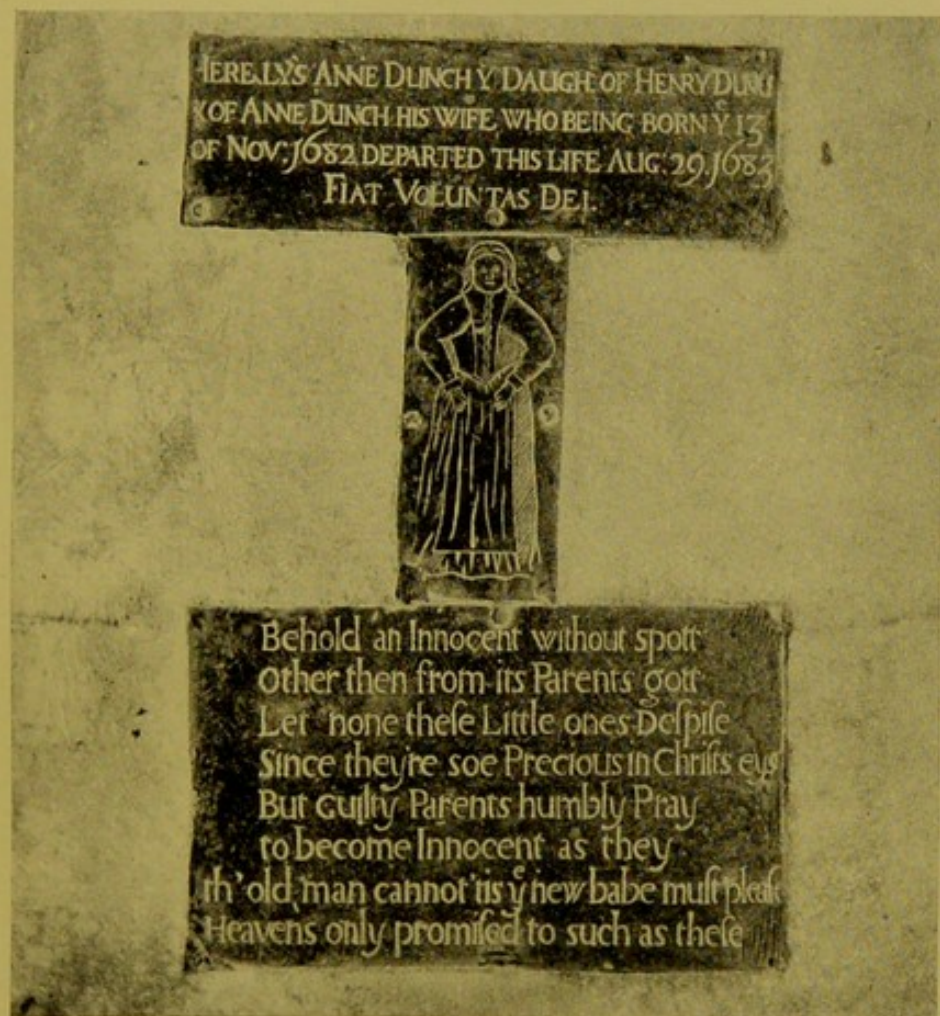 HERE LYS ANNE DUNCH Yᵉ DAUGH: OF HENRY DUNCH
& OF ANNE DUNCH HIS WIFE, WHO BEING BORN Yᵉ 13
OF NOV: 1682 DEPARTED THIS LIFE AUG: 29. 1683
FIAT VOLUNTAS DEI.
Behold an Innocent without spott
Other then from its Parents gott
Let none theſe Little ones Deſpiſe
Since they're soe Precious in Chriſts eys
But guilty Parents humbly Pray
to become Innocent as they
th' old man cannot 'tis yᵉ new babe muſt pleaſe
Heavens only promiſed to such as theſe